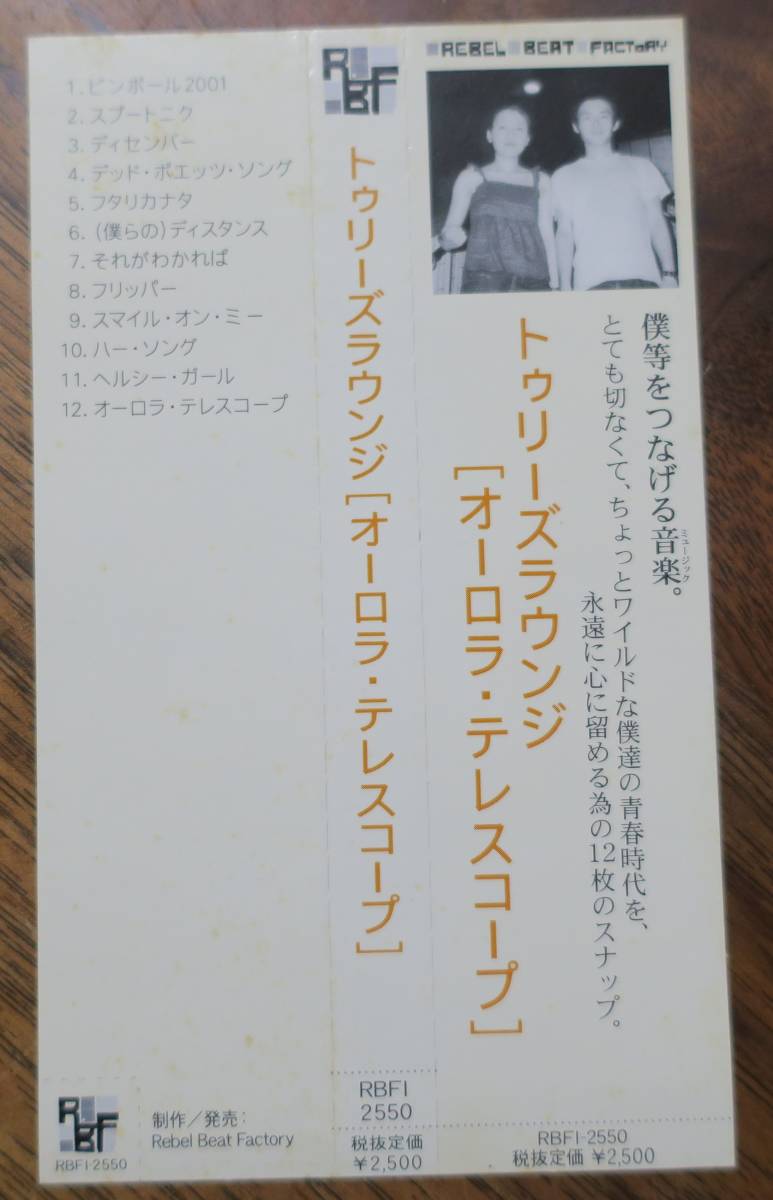 1. ピンボール2001
2. スプートニク
3. ディセンバー
4. デッド・ポエッツ・ソング
5. フタリカナタ
6. (僕らの)ディスタンス
7. それがわかれば
8. フリッパー
9. スマイル・オン・ミー
10. ハー・ソング
11. ヘルシー・ガール
12. オーロラ・テレスコープ
RBF
RBFI-2550
制作／発売：
Rebel Beat Factory
RBF
トゥリーズラウンジ[オーロラ・テレスコープ]
RBFI
2550
税抜定価
¥2,500
REBEL BEAT FACToRY
僕等をつなげる音楽。
ミュージック
とても切なくて、ちょっとワイルドな僕達の青春時代を、
永遠に心に留める為の12枚のスナップ。
トゥリーズラウンジ
[オーロラ・テレスコープ]
RBFI-2550
税抜定価 ¥2,500